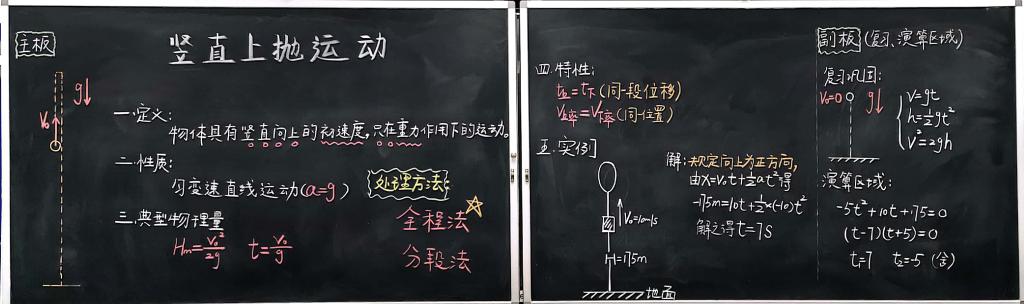 主板
竖直上抛运动
g↓
V₀
一.定义:
物体具有竖直向上的初速度,只在重力作用下的运动。
二.性质:
匀变速直线运动(a=g)
三.典型物理量
Hm=V₀²/2g t=V₀/g
处理方法:
全程法
分段法
四.特性:
t上=t下(同一段位移)
V上率=V下率(同一位置)
五.实例
V₀=10m/s
H=175m
地面
解:规定向上为正方向,
由X=V₀t+½at²得
-175m=10t+½×(-10)t²
解之得t=7s
副板(复习、演算区域)
复习巩固:
V₀=0 g↓
V=gt
h=½gt²
V²=2gh
演算区域:
-5t²+10t+175=0
(t-7)(t+5)=0
t₁=7 t₂=-5(舍)